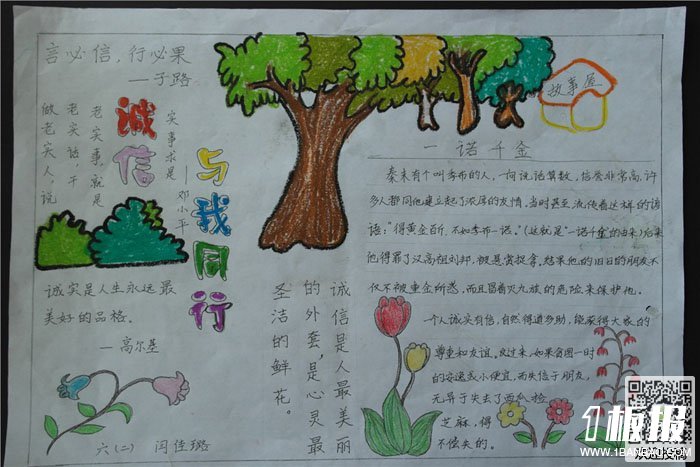 言必信，行必果
—子路
诚信
与我同行
做老实人，说
老实话，干
老实事，就是
实事求是
—邓小平
诚实是人生永远最
美好的品格。
—高尔基
六(二) 闫佳璐
诚信是人最美丽
的外套，是心灵最
圣洁的鲜花。
故事屋
一诺千金
秦末有个叫季布的人，一向说话算数，信誉非常高，许
多人都同他建立起了浓厚的友情。当时甚至流传着这样的谚
语："得黄金百斤，不如季布一诺。"(这就是"一诺千金的由来)后来
他得罪了汉高祖刘邦，被悬赏捉拿。结果他的旧日的朋友不
仅不被重金所惑，而且冒着灭九族的危险来保护他。
一个人诚实有信，自然得道多助，能获得大家的
尊重和友谊。反过来，如果贪图一时
的安逸或小便宜，而失信于朋友，
无异于失去了西瓜捡
芝麻，得
不偿失的。
板报
WWW.1BANBAO.COM
欢迎投稿